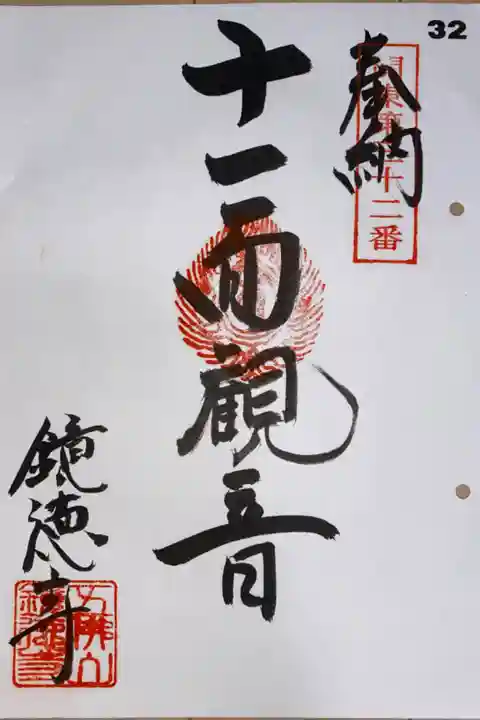 32
奉納
関東第三十二番
十一面觀音
鏡徳寺